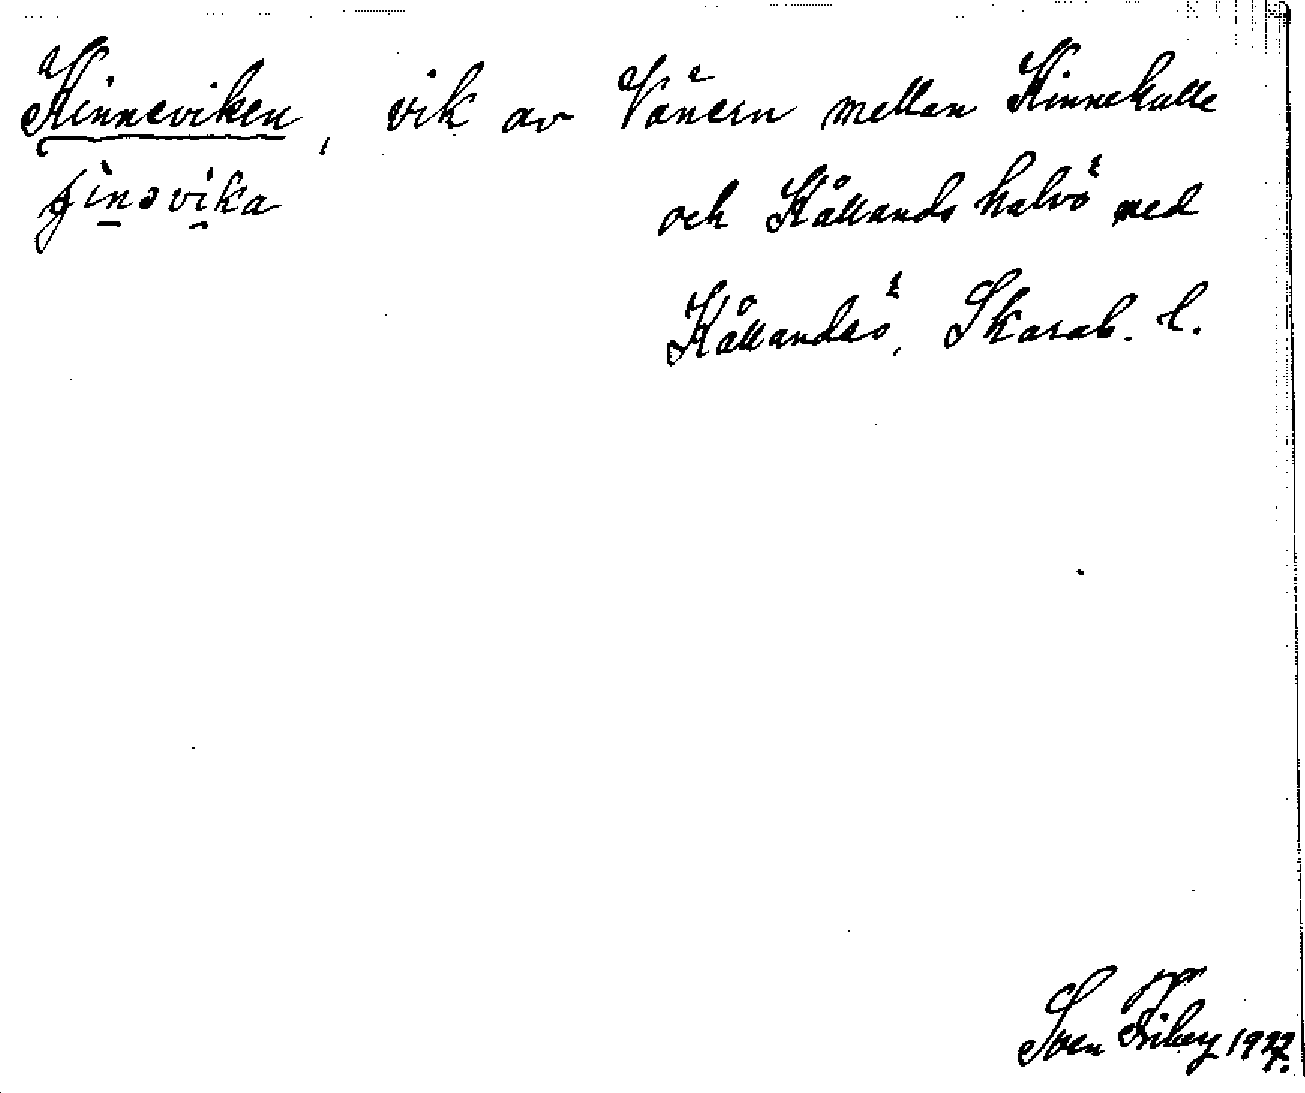 Kinneviken, vik av Vänern mellan Kinnekulle
och Kållands halvö med
Kållandsö, Skarab. l.
Sven